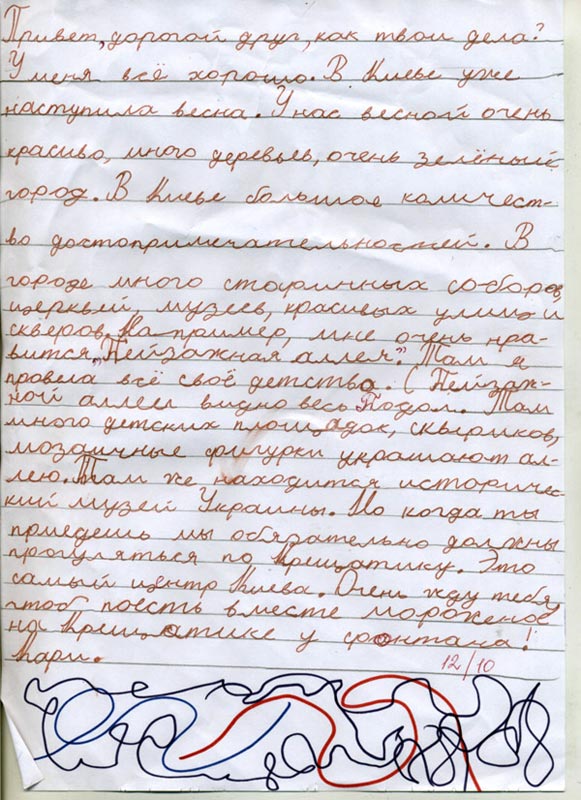 Привет, дорогой друг, как твои дела?
У меня всё хорошо. В Киеве уже
наступила весна. У нас весной очень
красиво, много деревьев, очень зелёный
город. В Киеве большое количест-
во достопримечательностей. В
городе много старинных соборов,
церквей, музеев, красивых улиц и
скверов. Например, мне очень нра-
вится "Пейзажная аллея". Там я
провела всё своё детство. С Пейзаж-
ной аллеи видно весь Подол. Там
много детских площадок, сквериков,
мозаичные фигурки украшают ал-
лею. Там же находится историчес-
кий музей Украины. Но когда ты
приедешь мы обязательно должны
прогуляться по Крещатику. Это
самый центр Киева. Очень жду тебя
чтоб поесть вместе мороженое
на Крещатике у фонтана!
Мари.
12/10